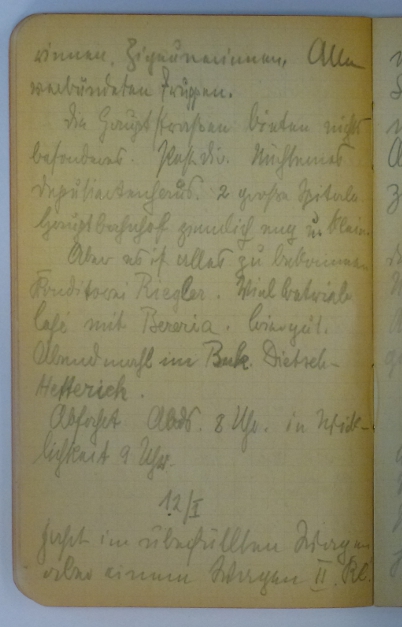 rinnen, Zigeunerinnen. Alle
verbündeten Truppen.
Die Hauptstrassen bieten nichts
besonderes. Nüchternes
Deputiertenhaus. 2 grosse Spitale
Hauptbahnhof ziemlich eng u. klein.
Aber es ist alles zu bekommen
Konditorei Riegler.
Café mit Bereria.
Abendmahl im Dietsch-
Hefterich.
Abfahrt Abds. 8 Uhr. in Wirk-
lichkeit 9 Uhr.
12/I
Fahrt im überfüllten Wagen
einem Wagen II. Kl.